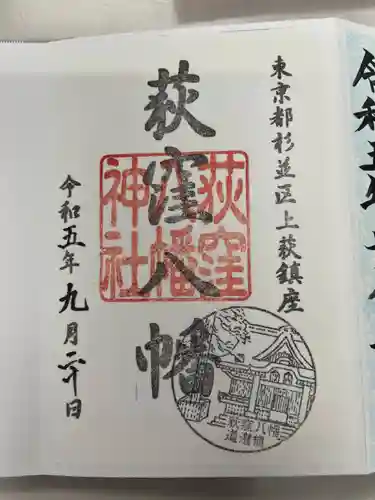 東京都杉並区上荻鎮座
荻窪八幡
荻窪八幡神社
令和五年九月二十日
荻窪八幡
道灌槇
令和五年